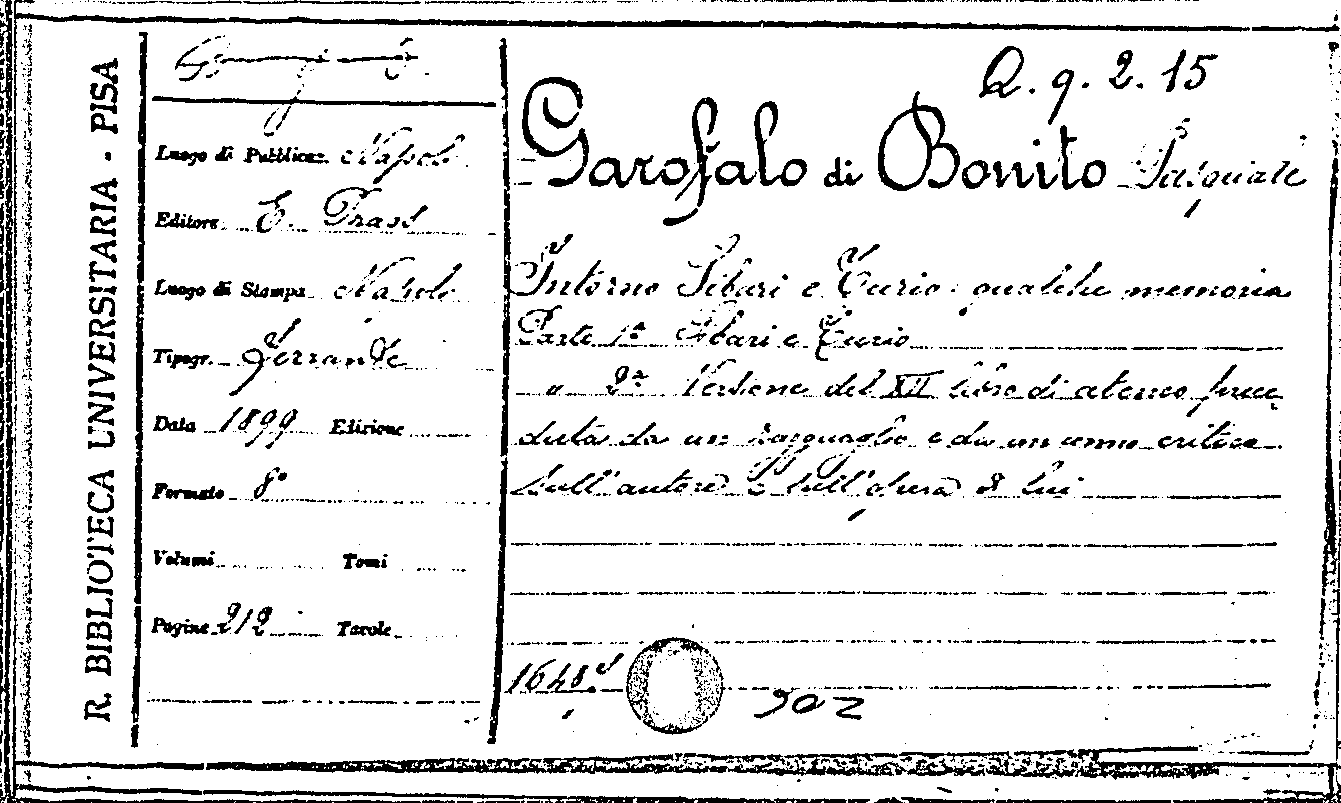 R. BIBLIOTECA UNIVERSITARIA - PISA
Luogo di Pubblicaz. Napoli
Editore E. Prass
Luogo di Stampa Napoli
Tipogr. Ferrante
Data 1899 Edizione
Formato 8°
Volumi Tomi
Pagine 212 Tavole
Q. g. 2. 15
Garofalo di Bonito Pasquale
Intorno Sibari e Turio. qualche memoria
Parte 1ª Sibari e Turio
" 2ª Versione del XII libro di ateneo prece
duta da un ragguaglio e da un cenno critico
sull'autore e sull'opera di lui